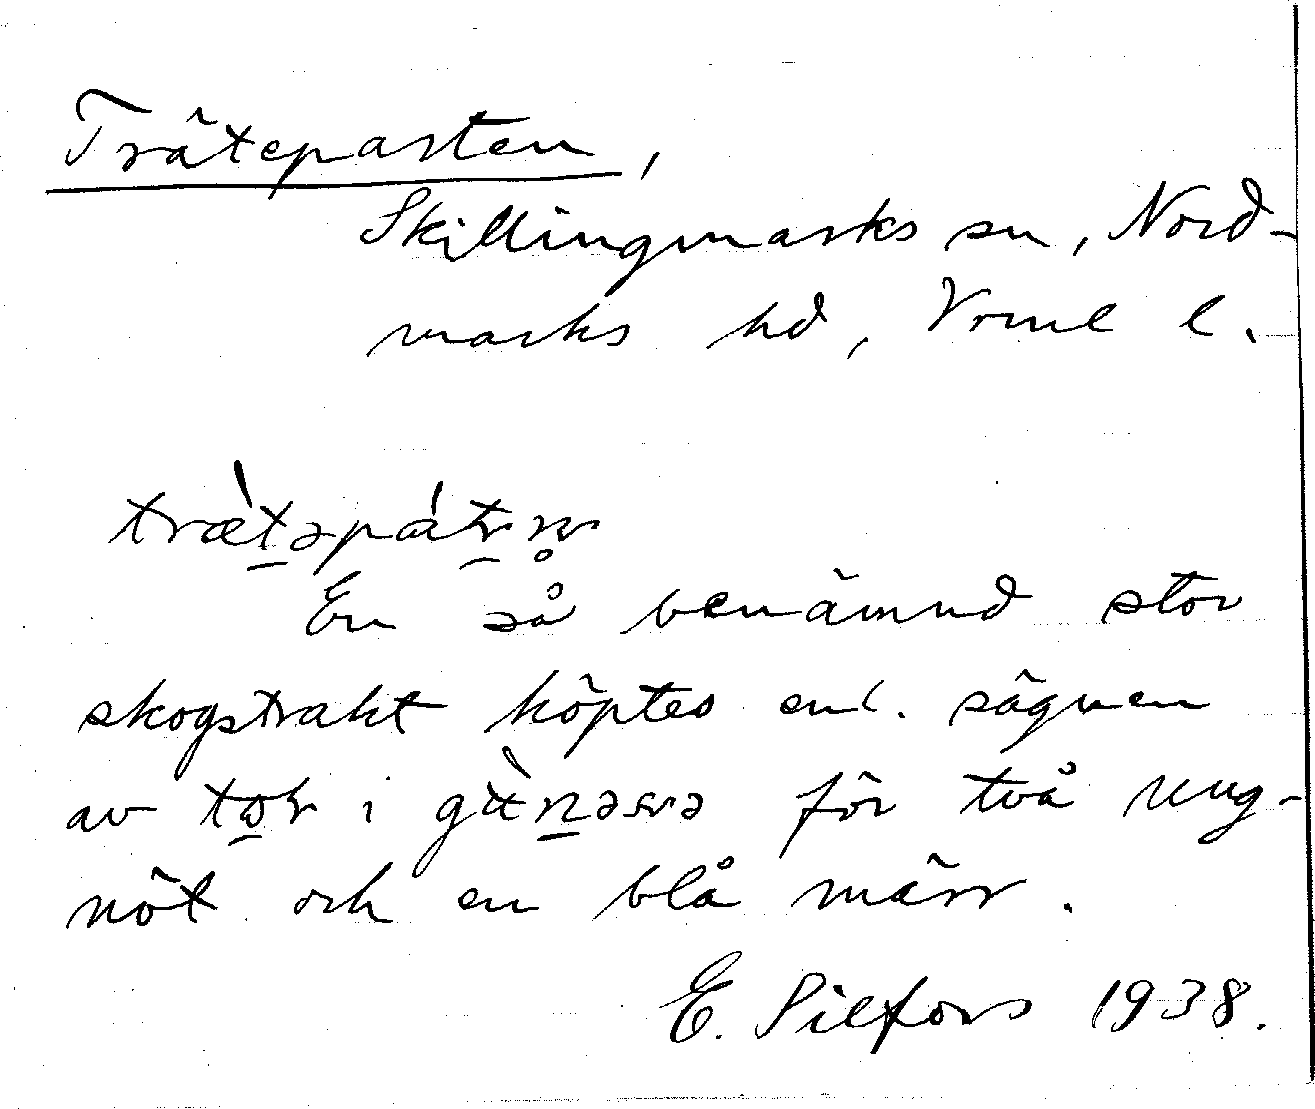 Träteparten,
Skillingmarks sn, Nord-
marks hd, Vrml l.
En så benämnd stor
skogstrakt köptes enl. sägnen
av i för två ung-
nöt och en blå märr.
E. Silfors 1938.